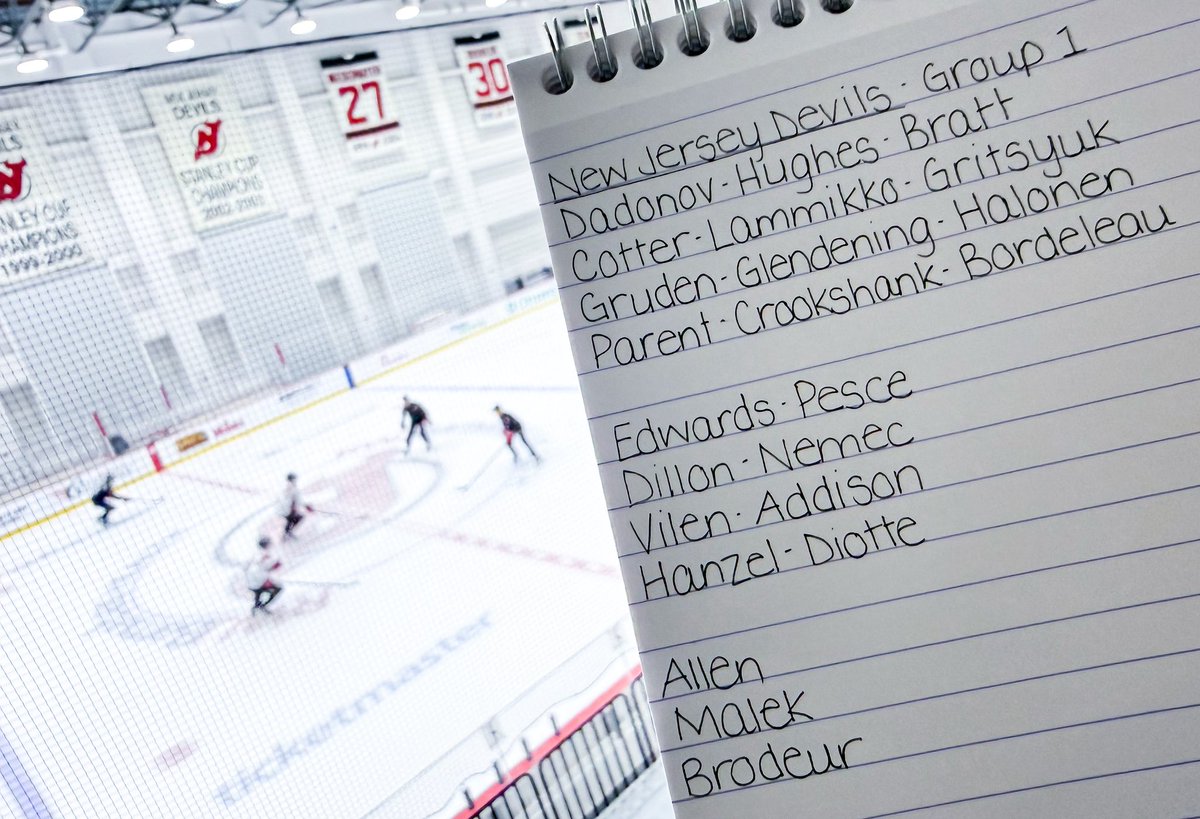 New Jersey Devils - Group 1
Dadonov - Hughes - Bratt
Cotter - Lammikko - Gritsyuk
Gruden - Glendening - Halonen
Parent - Crookshank - Bordeleau
Edwards - Pesce
Dillon - Nemec
Vilen - Addison
Hanzel - Diotte
Allen
Malek
Brodeur
DEVILS
STANLEY CUP
CHAMPIONS
27
30
STANLEY CUP
CHAMPIONS
1999-2000
ticketmaster